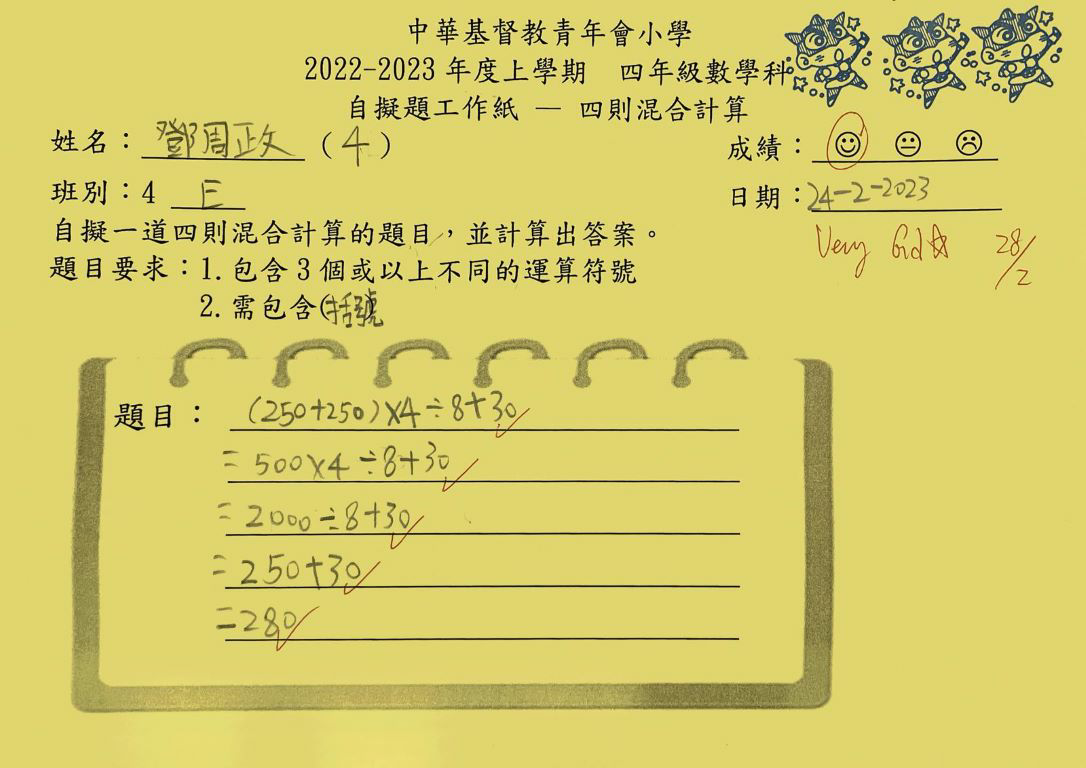 中華基督教青年會小學
2022-2023 年度上學期 四年級數學科
自擬題工作紙 — 四則混合計算
姓名：鄧周政 (4)
成績：
班別：4 E
日期：24-2-2023
自擬一道四則混合計算的題目，並計算出答案。
Very Good 28/2
題目要求：1. 包含 3 個或以上不同的運算符號
2. 需包含(括號
題目： (250+250)×4÷8+30
=500×4÷8+30
=2000÷8+30
=250+30
=280